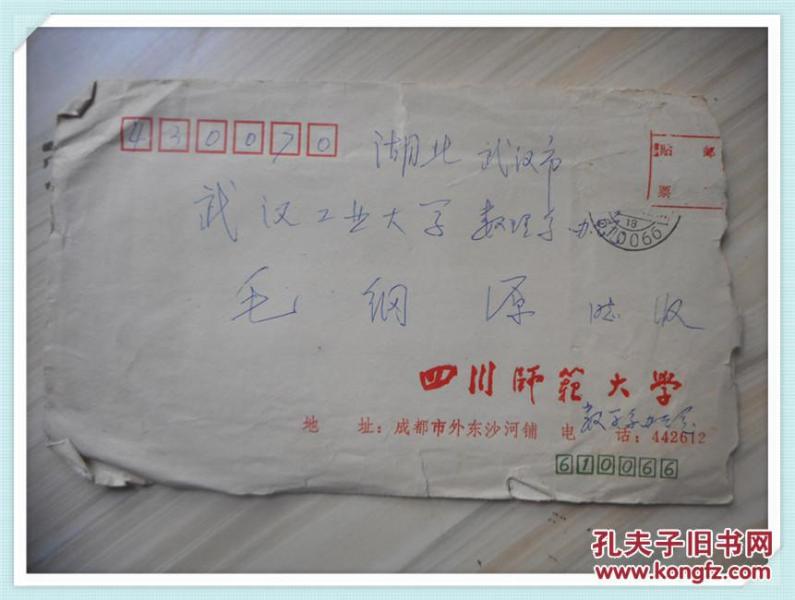 430070 湖北 武汉市
贴 邮
票
武汉工业大学 数理系 办
18
610066
毛 纲 源 收
四川师范大学
地 址：成都市外东沙河铺 电 话：442612
610066
孔夫子旧书网
www.kongfz.com